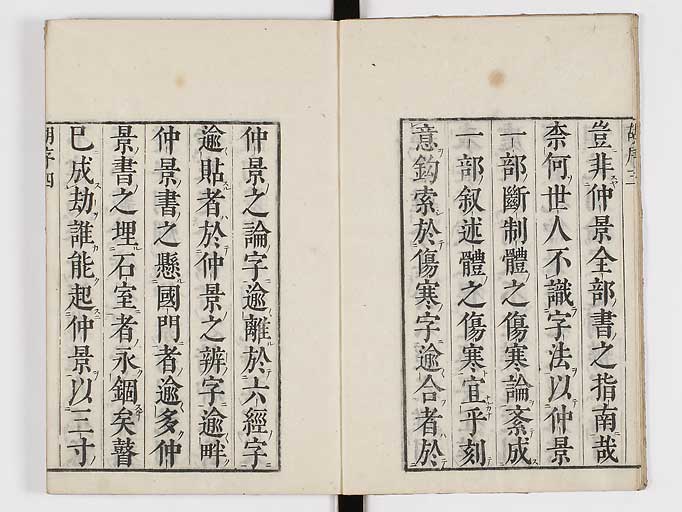 豈非仲景全部書之指南哉
柰何世人不識字法以仲景
一部斷制體之傷寒論紊成
一部叙述體之傷寒宜乎刻
意鈎索於傷寒字逾合者於
胡序三
仲景之論字逾離於六經字
逾貼者於仲景之辨字逾畔
仲景書之懸國門者逾多仲
景書之埋石室者永錮矣瞽
巳成劫誰能起仲景以三寸
胡序四